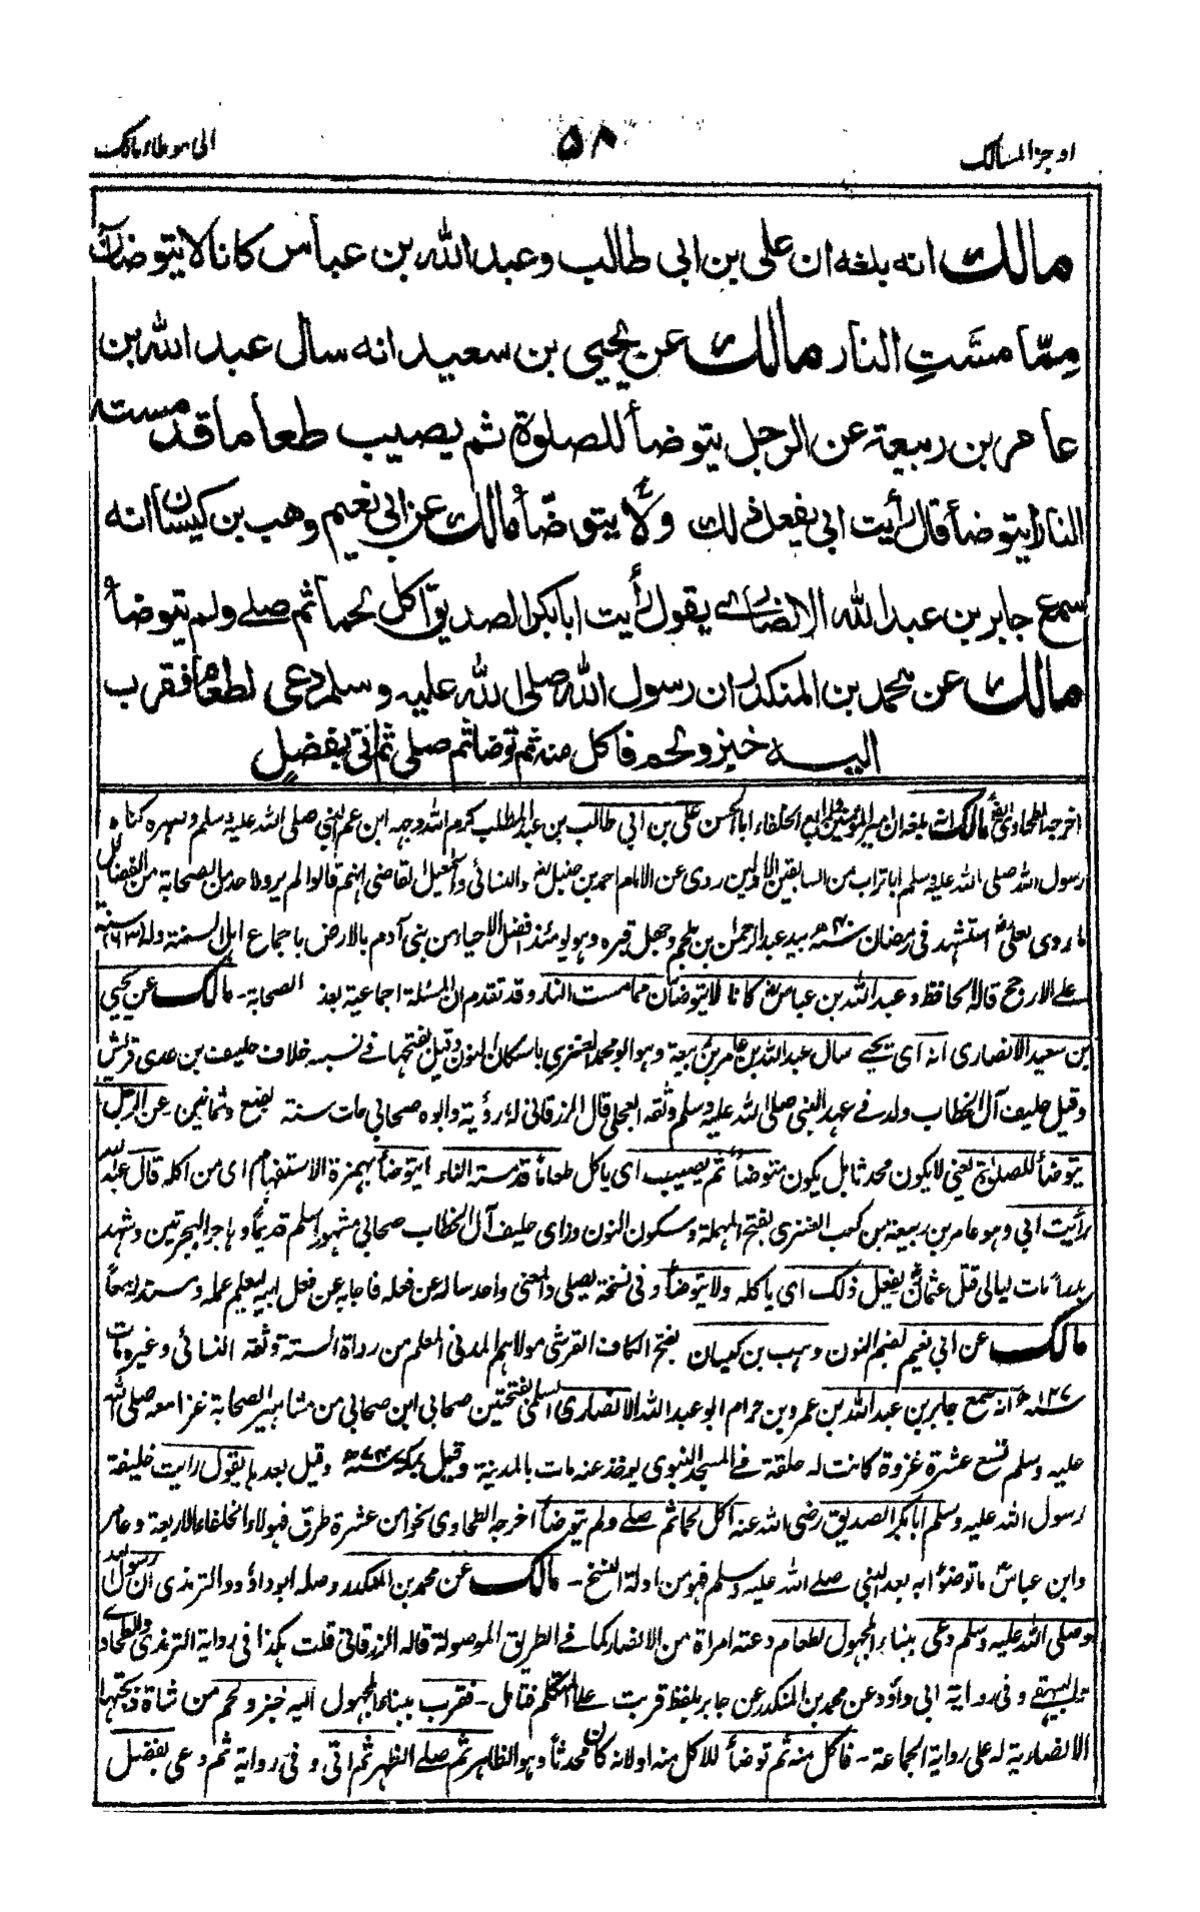 اوجز المسالك
٥٨
الى موطا مالك
مالك انه بلغه ان على بن ابى طالب وعبد الله بن عباس كانا لا يتوضأن
مِمّا مسَّتِ النار مالك عن يحيى بن سعيد انه سأل عبد الله بن
عامر بن ربيعة عن الرجل يتوضأ للصلوة ثم يصيب طعاما قد مسته
النار ايتوضأ قال رأيت ابى يفعل ذلك ولا يتوضّأ مالك عن ابى نعيم وهب بن كيسان انه
سمع جابر بن عبد الله الانصارى يقول رأيت ابا بكر الصديق اكل لحما ثم صلى ولم يتوضأ
مالك عن محمد بن المنكدر ان رسول الله صلى الله عليه وسلم دعى لطعام فقرب
اليه خبز ولحم فاكل منه ثم توضا ثم صلى ثم اتى بفضلِ
اخرجه الطحاوى مالك انه بلغه ان امير المؤمنين رابع الخلفاء ابا الحسن على بن ابى طالب بن عبد المطلب كرم الله وجهه ابن عم النبى صلى الله عليه وسلم وصهره كناه
رسول الله صلى الله عليه وسلم ابا تراب من السابقين الاولين روى عن الامام احمد بن حنبل والنسائى واسمعيل القاضى انهم قالوا لم يرو لاحد من الصحابة من الفضائل
ما روى لعلى استشهد فى رمضان سنة ٤٠ بيد عبد الرحمن بن ملجم وجهل قبره وهو يومئذ افضل الاحياء من بنى آدم بالارض باجماع اهل السنة وله (٦٣) سنة
على الارجح قاله الحافظ وعبد الله بن عباس كانا لا يتوضأن مما مست النار وقد تقدم ان المسئلة اجماعية بعد الصحابة - مالك عن يحيى
بن سعيد الانصارى انه اى يحيى سال عبد الله بن عامر بن ربيعة وهو ابو محمد العنزى باسكان النون وقيل بفتحها فى نسبه خلاف حليف بن عدى قريش
وقيل حليف آل الخطاب ولد فى عهد النبى صلى الله عليه وسلم وثقه العجلى قال الزرقانى له رؤية وابوه صحابى مات سنة بضع وثمانين عن الرجل
يتوضأ للصلوة يعنى لا يكون محدثا بل يكون متوضأ ثم يصيب اى ياكل طعاما قد مسته النار ايتوضأ بهمزة الاستفهام اى من اكله قال عبد الله
رأيت ابى وهو عامر بن ربيعة بن كعب العنزى بفتح المهملة وسكون النون وزاى حليف آل الخطاب صحابى مشهور اسلم قديما وهاجر الهجرتين وشهد
بدرا مات ليالى قتل عثمان يفعل ذلك اى ياكله ولا يتوضأ وفى نسخة يصلى والمعنى واحد ساله عن فعله فاجابه عن فعل ابيه ليعلم عمله وسنده معا
مالك عن ابى نعيم بضم النون وهب بن كيسان بفتح الكاف القرشى مولاهم المدنى المعلم من رواة الستة وثقه النسائى وغيره مات
سنة ١٢٧ انه سمع جابر بن عبد الله بن عمرو بن حرام ابو عبد الله الانصارى السلمى بفتحتين صحابى ابن صحابى من مشاهير الصحابة غزا معه صلى الله
عليه وسلم تسع عشرة غزوة كانت له حلقة فى المسجد النبوى يؤخذ عنه مات بالمدينة وقيل بمكة سنة ٧٣ وقيل بعدها يقول رايت خليفة
رسول الله عليه وسلم ابا بكر الصديق رضى الله عنه اكل لحما ثم صلى ولم يتوضأ اخرجه الطحاوى بنحوا من عشرة طرق فهولاء الخلفاء الاربعة وعامر
وابن عباس ما توضؤا به بعد النبى صلى الله عليه وسلم فهو من ادلة النسخ - مالك عن محمد بن المنكدر وصله ابو داؤد والترمذى ان رسول الله
صلى الله عليه وسلم دعى ببناء المجهول لطعام دعته امرأة من الانصار كما فى الطريق الموصولة قاله الزرقانى قلت هكذا فى رواية الترمذى والطحاوى
والبيهقى وفى رواية ابى داؤد عن محمد بن المنكدر عن جابر بلفظ قربت على المتكلم فتامل - فقرب ببناء المجهول اليه خبز ولحم من شاة ذبحتها
الانصارية له على رواية الجماعة - فاكل منه ثم توضأ للاكل منه او لانه كان محدثا وهو الظاهر ثم صلى الظهر ثم اتى وفى رواية ثم دعى بفضل